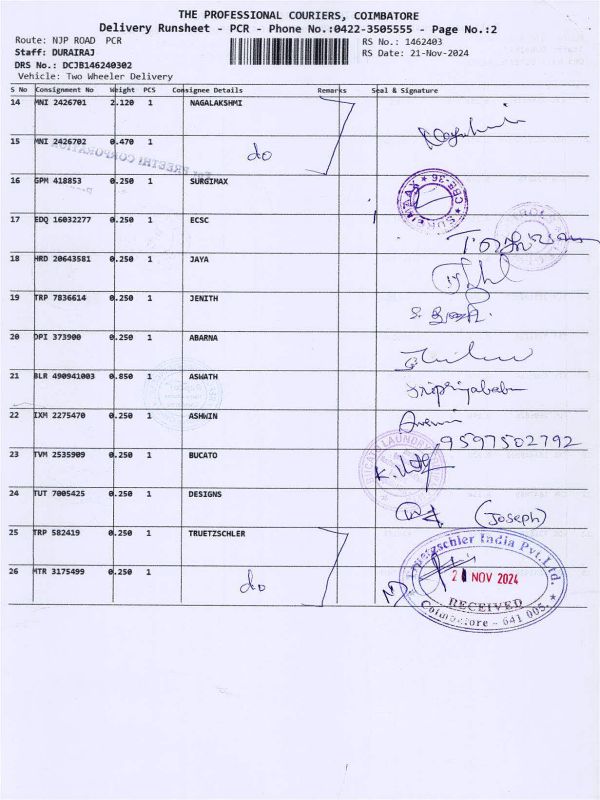 THE PROFESSIONAL COURIERS, COIMBATORE
Delivery Runsheet - PCR - Phone No.:0422-3505555 - Page No.:2
Route: NJP ROAD PCR
RS No.: 1462403
Staff: DURAIRAJ
RS Date: 21-Nov-2024
DRS No.: DCJB146240302
Vehicle: Two Wheeler Delivery
S No Consignment No Weight PCS Consignee Details Remarks Seal & Signature
14 MNI 2426701 2.120 1 NAGALAKSHMI
15 MNI 2426702 0.470 1 do
For PREETHI CORPORATION
16 GPM 418853 0.250 1 SURGIMAX
SURGIMAX * CBE-36 *
17 EDQ 16032277 0.250 1 ECSC
18 HRD 20643581 0.250 1 JAYA
19 TRP 7836614 0.250 1 JENITH
20 OPI 373900 0.250 1 ABARNA
21 BLR 490941003 0.850 1 ASWATH
22 IXM 2275470 0.250 1 ASHWIN
9597502792
23 TVM 2535909 0.250 1 BUCATO
BUCATO LAUNDRY
24 TUT 7005425 0.250 1 DESIGNS
(Joseph)
25 TRP 582419 0.250 1 TRUETZSCHLER
26 MTR 3175499 0.250 1 do
Truetzschler India Pvt.Ltd.
21 NOV 2024
RECEIVED
Coimbatore - 641 005.